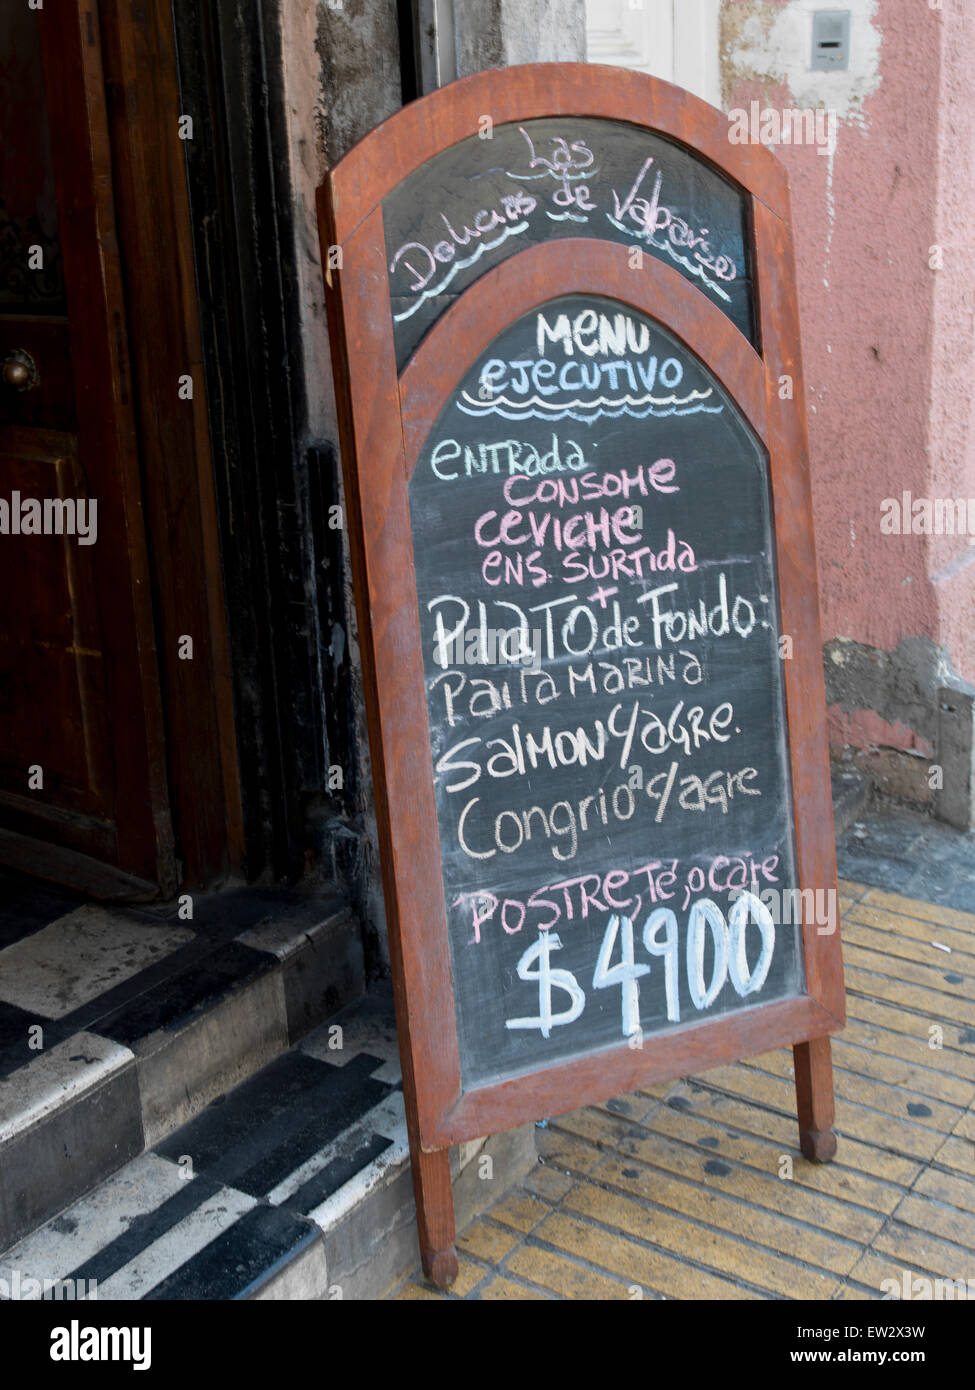 Las
Delicias de Valparaiso
MENU
EJECUTIVO
ENTRada:
CONSOME
CEVICHE
ENS. SURTIDA
+
PLATO de FONDO:
Paila MARINA
SALMON c/agre.
Congrio c/agre
POSTRE, Té, o cafe
$4900
alamy stock photo
EW2X3W
www.alamy.com